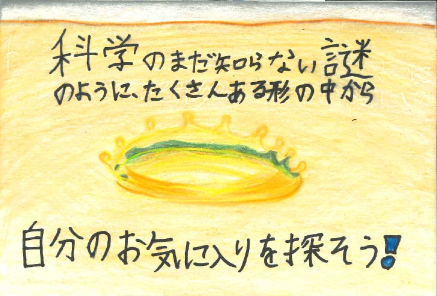 科学のまだ知らない謎
のように、たくさんある形の中から
自分のお気に入りを探そう!